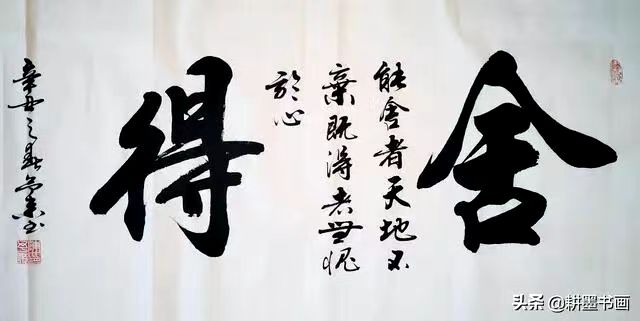 舍
能舍者天地不
棄既得者無愧
於心
得
辛丑之春
头条 @耕墨书画